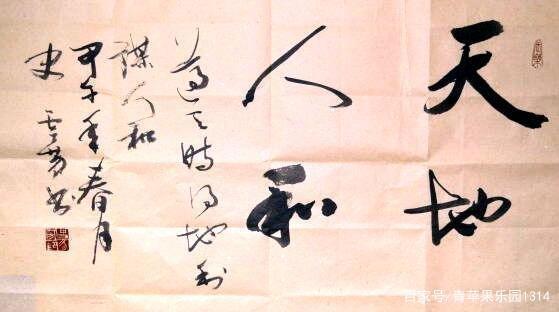 天地
人和
遵天時得地利
謀人和
甲午年春月
史
書
百家号/青苹果乐园1314